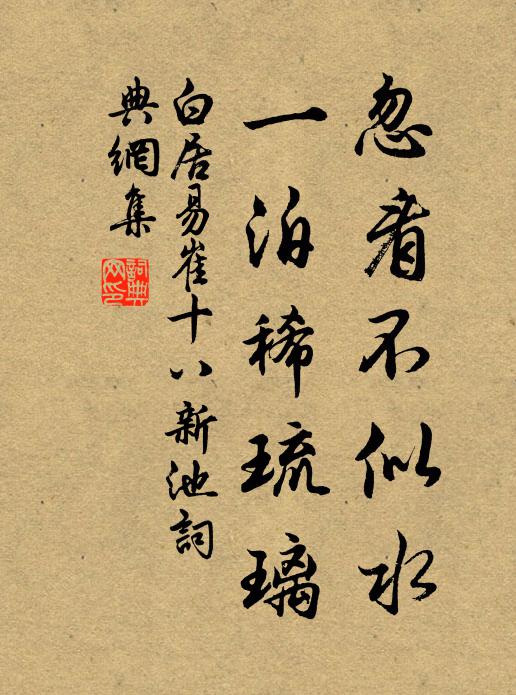 忽看不似水
一泊稀琉璃
白居易崔十八新池詞
典網集
詞典網印